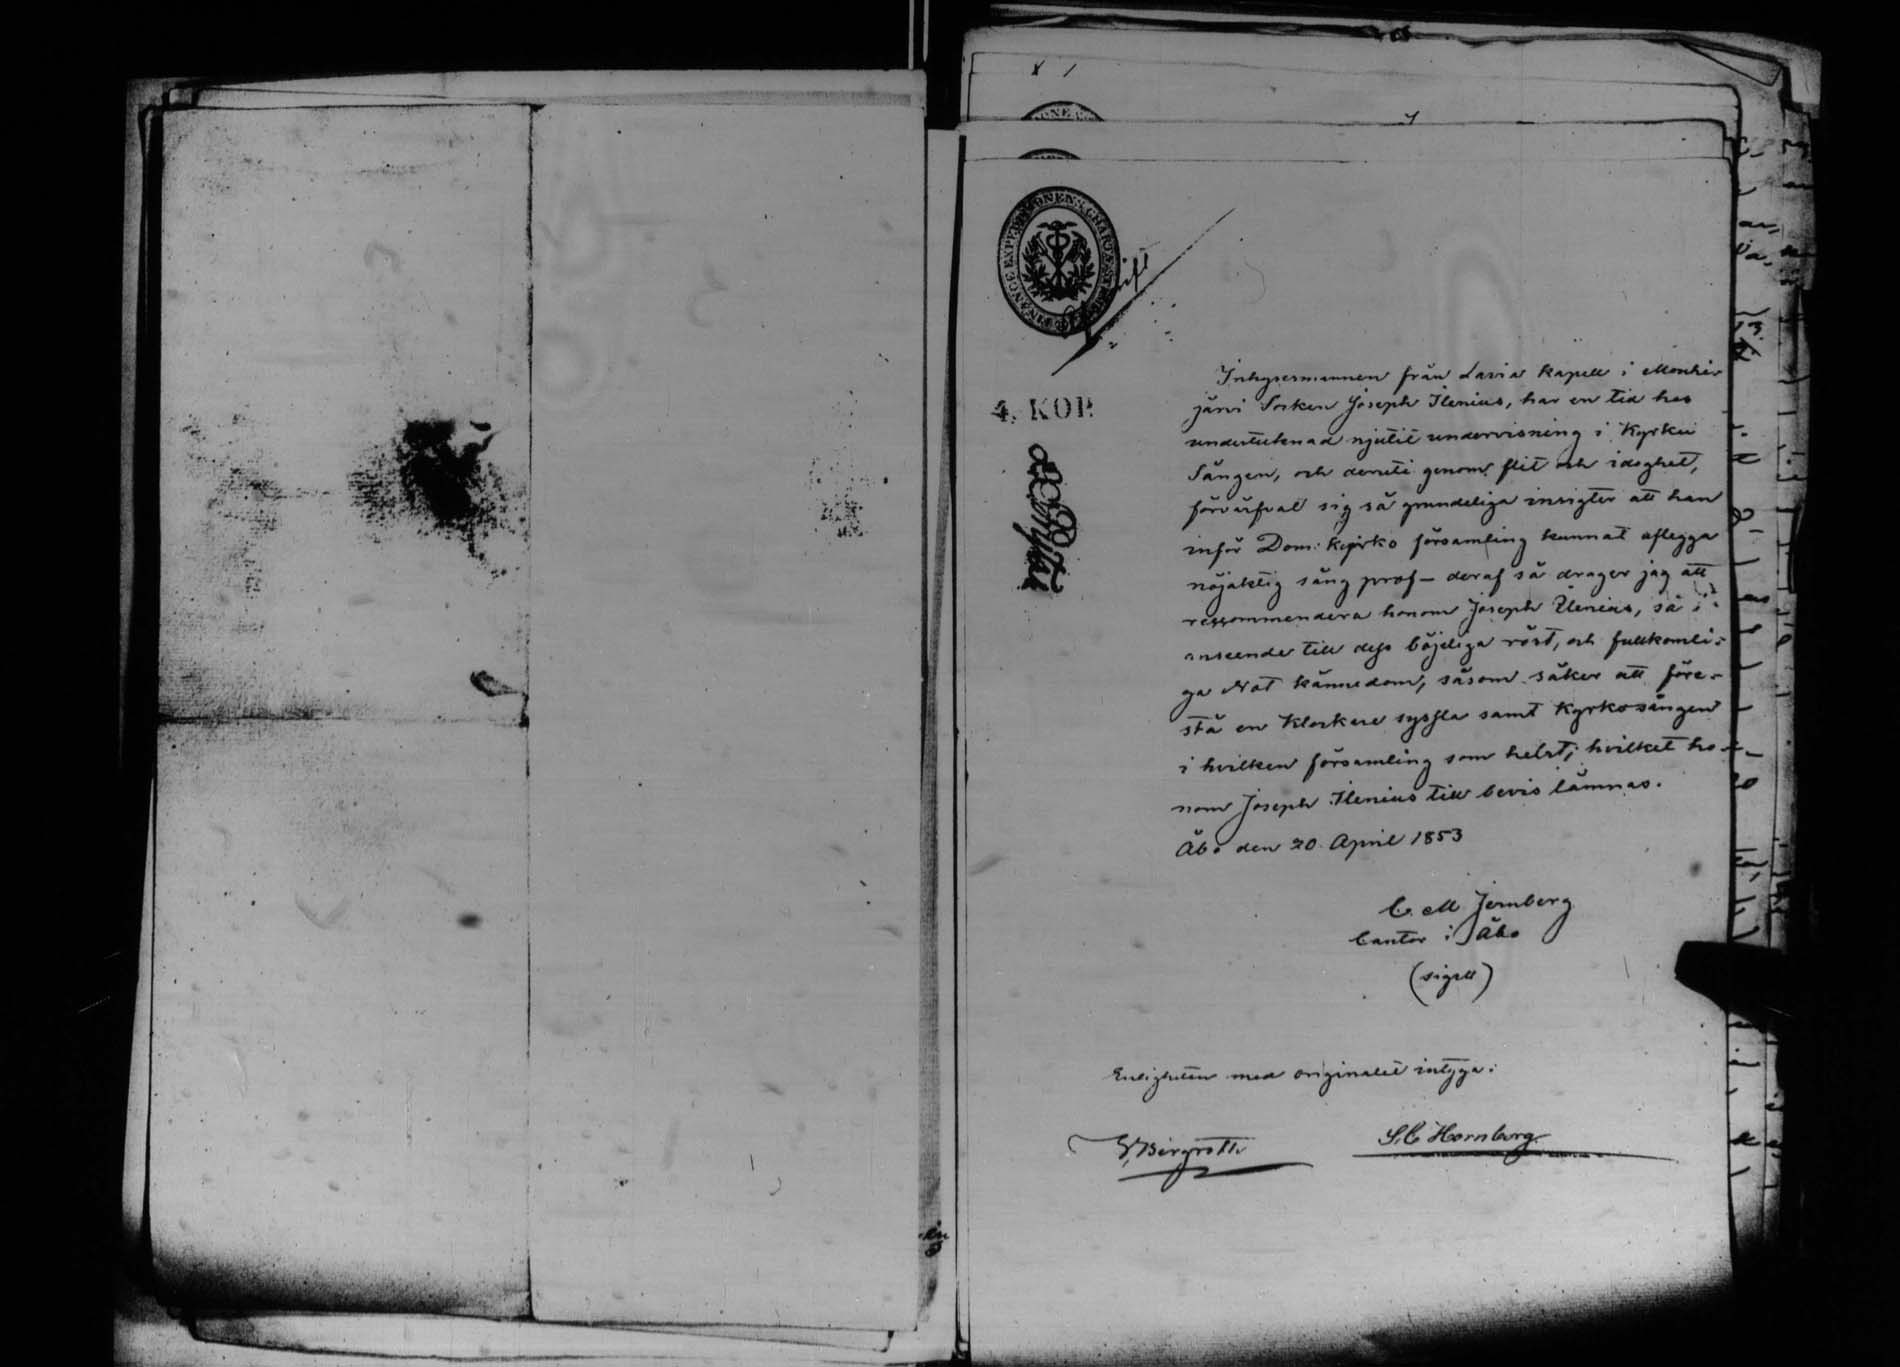 Afskrift
4. KOP.
Inhysesmannen från Lavia kapell i Mouhi-
järvi Socken Joseph Ilenius, har en tid hos
undertecknad njutit undervisning i Kyrko
Sången, och deruti genom flit och idoghet,
förvärfvat sig så grundeliga insigter att han
inför Dom: kyrko församling kunnat aflegga
nöjaktig sång prof – deraf så drager jag att
recommendera honom Joseph Ilenius, så i
anseende till dess böjeliga röst, och fullkomli-
ga Not kännedom, såsom säker att före-
stå en Klockare syssla samt Kyrkosången
i hvilken församling som helst; hvilket ho-
nom Joseph Ilenius till bevis lämnas.
Åbo den 20 April 1853
C. M Jernberg
Cantor i Åbo
(sigill)
Enligheten med originalet intyga:
Bergroth
S. C Hornborg